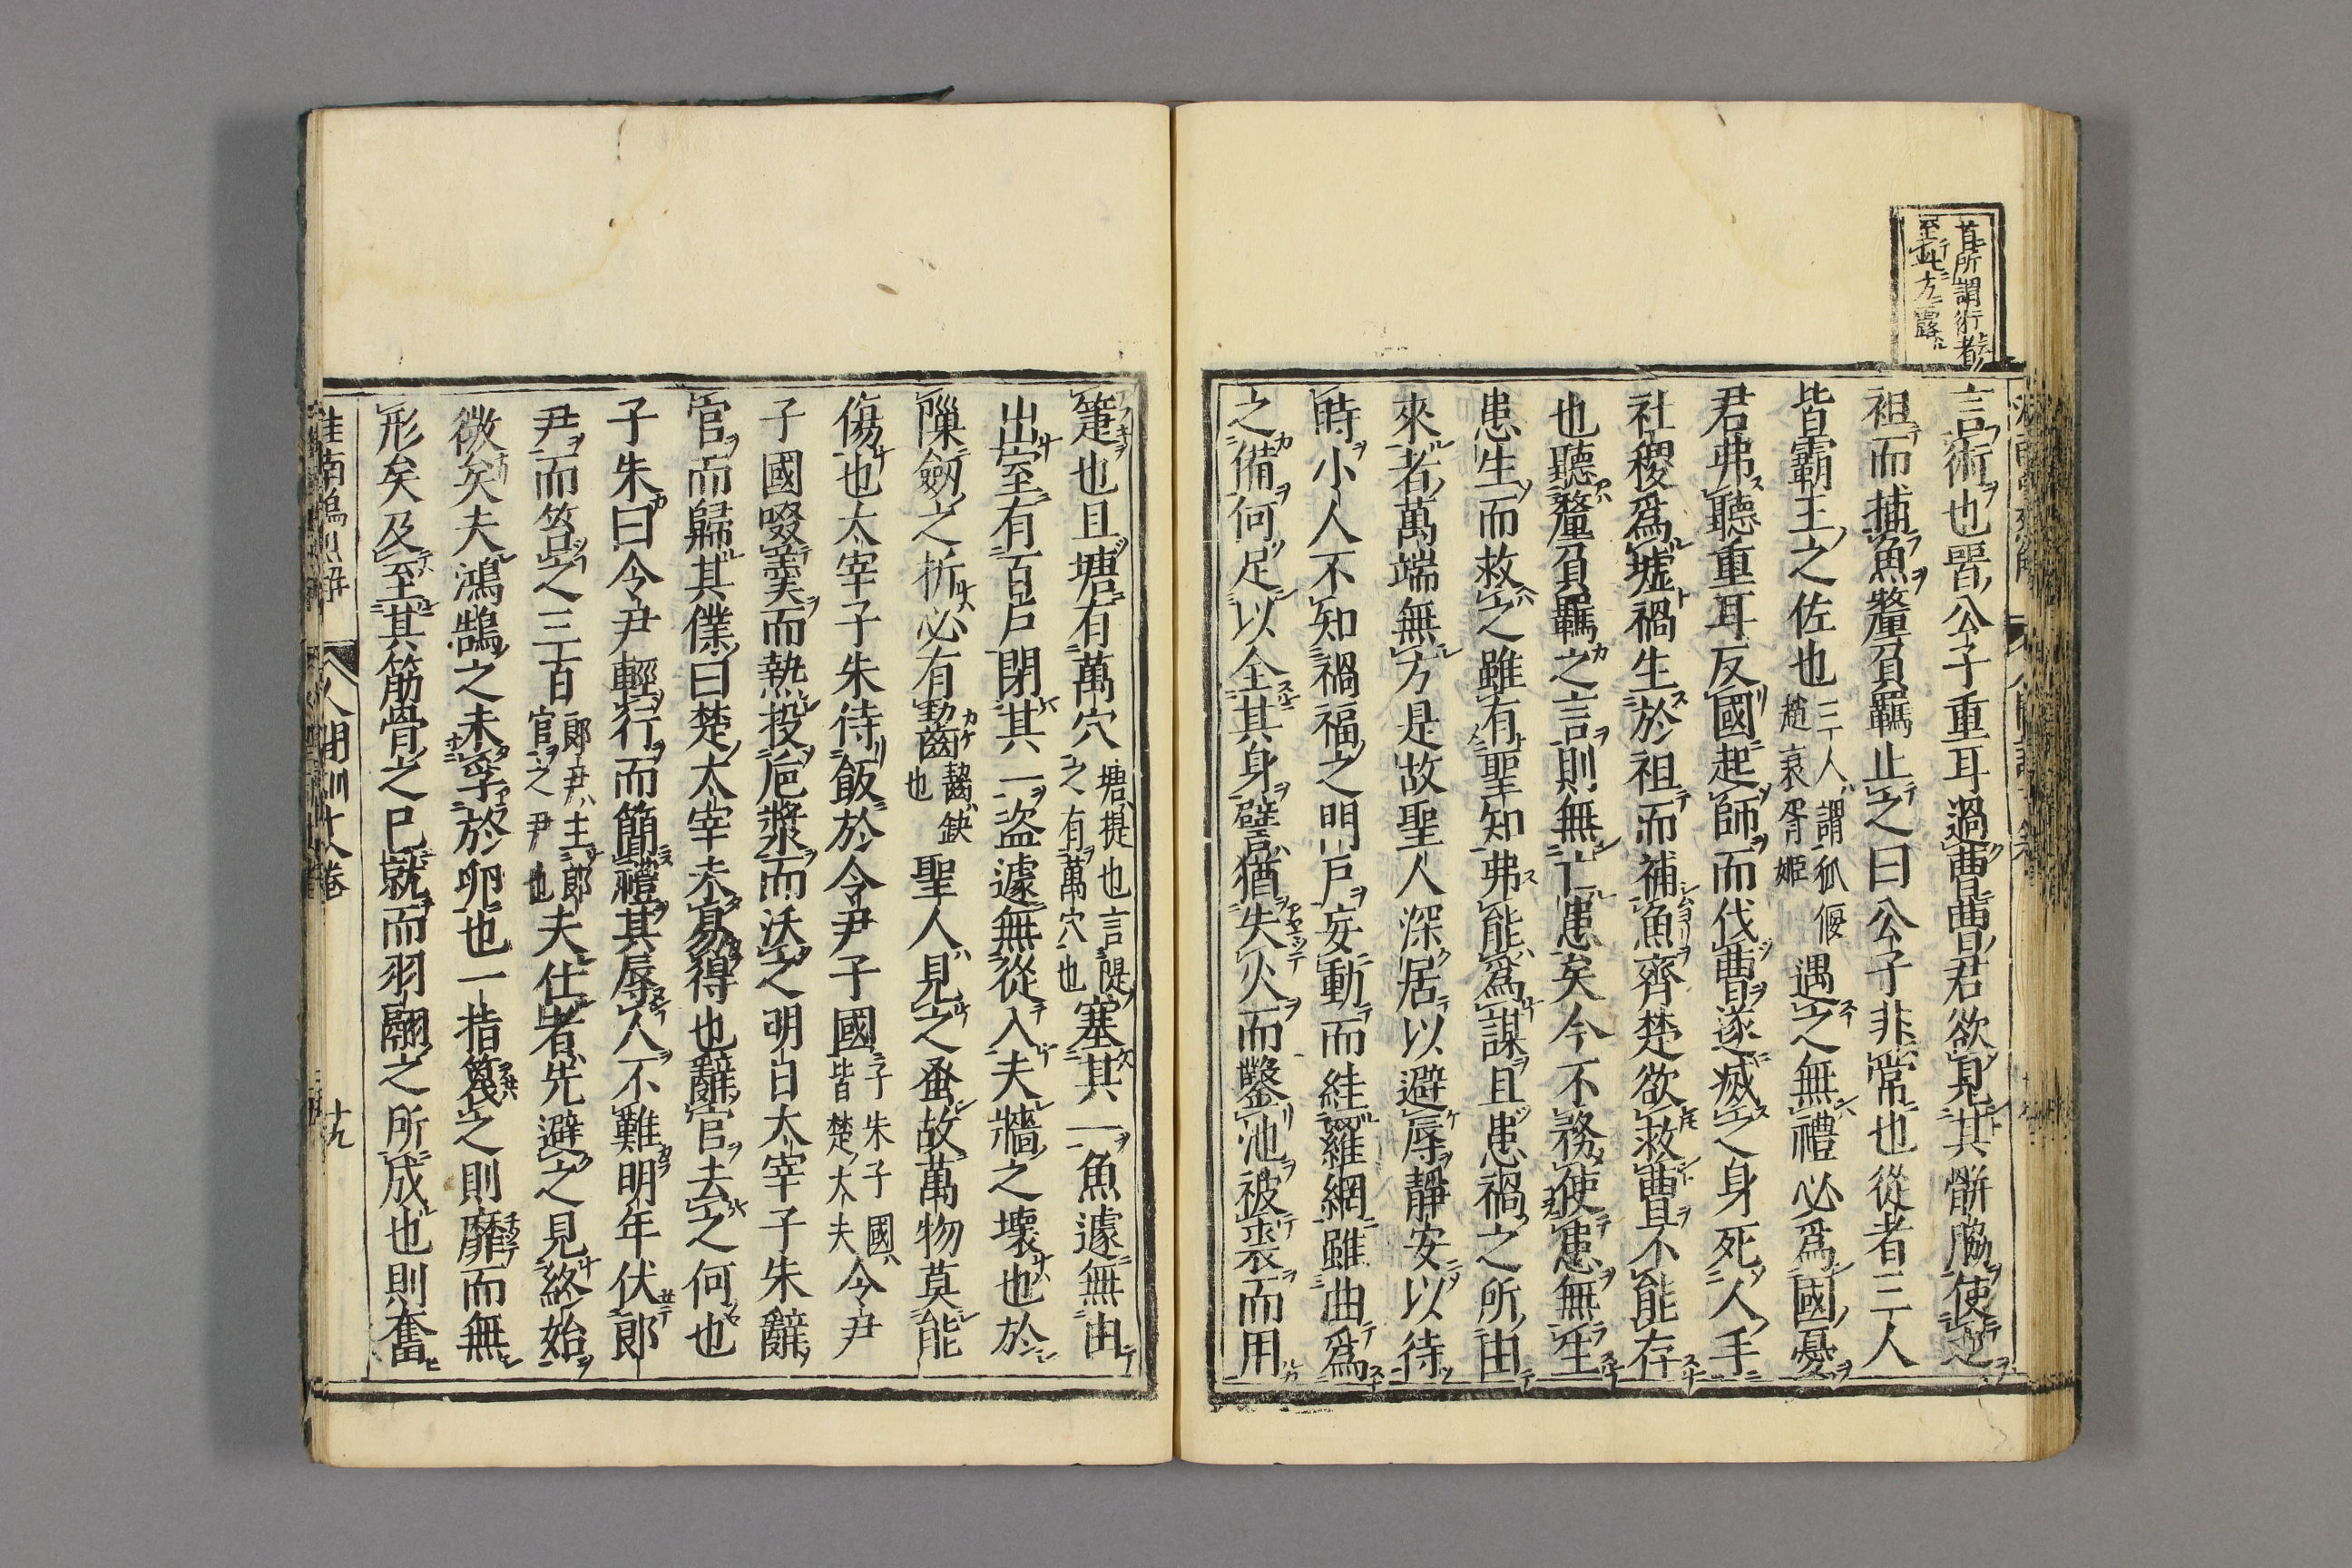 首所謂術者
至此方露
言術也晉公子重耳過曹曹君欲見其骿脇使之
袒而捕魚釐負羈止之曰公子非常也從者三人
皆霸王之佐也三人謂狐偃趙衰胥姬遇之無禮必爲國憂
君弗聽重耳反國起師而伐曹遂滅之身死人手
社稷爲墟禍生於袒而補魚齊楚欲救曹不能存
也聽釐負羈之言則無亡患矣今不務使患無生
患生而救之雖有聖知弗能爲謀且患禍之所由
來者萬端無方是故聖人深居以避辱靜安以待
時小人不知禍福之門戶妄動而絓羅網雖曲爲
之備何足以全其身譬猶失火而鑿池被裘而用
箑也且塘有萬穴塘提也言隄之有萬穴也塞其一魚遽無由
出室有百戶閉其一盜遽無從入夫牆之壞也於
隟劒之折必有齧齧缺也聖人見之蚤故萬物莫能
傷也太宰子朱侍飯於令尹子國子朱子國皆楚大夫令尹
子國啜羹而熱投巵漿而沃之明日太宰子朱辭
官而歸其僕曰楚太宰未易得也辭官去之何也
子朱曰令尹輕行而簡禮其辱人不難明年伏郎
尹而笞之三百郎尹主郎官之尹也夫仕者先避之見終始
微矣夫鴻鵠之未孚於卵也一指篾之則靡而無
形矣及至其筋骨之已就而羽翮之所成也則奮
淮南鴻烈解 人間訓十八卷 十九